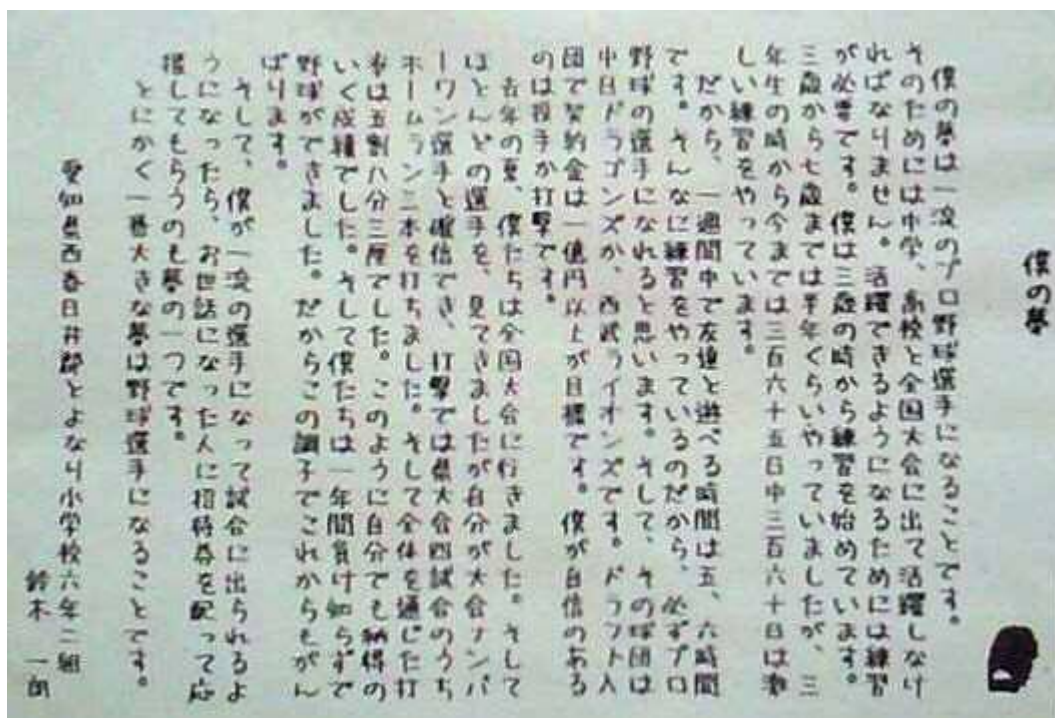 僕の夢
僕の夢は一流のプロ野球選手になることです。
そのためには中学、高校と全国大会に出て活躍しなけ
ればなりません。活躍できるようになるためには練習
が必要です。僕は三歳の時から練習を始めています。
三歳から七歳までは半年くらいやっていましたが、三
年生の時から今までは三百六十五日中三百六十日は激
しい練習をやっています。
だから、一週間中で友達と遊べる時間は五、六時間
です。そんなに練習をやっているのだから、必ずプロ
野球の選手になれると思います。そして、その球団は
中日ドラゴンズか、西武ライオンズです。ドラフト入
団で契約金は一億円以上が目標です。僕が自信のある
のは投手か打撃です。
去年の夏、僕たちは全国大会に行きました。そして
ほとんどの選手を、見てきましたが自分が大会ナンバ
ーワン選手と確信でき、打撃では県大会四試合のうち
ホームラン三本を打ちました。そして全体を通じた打
率は五割八分三厘でした。このように自分でも納得の
いく成績でした。そして僕たちは一年間負け知らずで
野球ができました。だからこの調子でこれからもがん
ばります。
そして、僕が一流の選手になって試合に出られるよ
うになったら、お世話になった人に招待券を配って応
援してもらうのも夢の一つです。
とにかく一番大きな夢は野球選手になることです。
愛知県西春日井郡とよなり小学校六年二組
鈴木 一朗